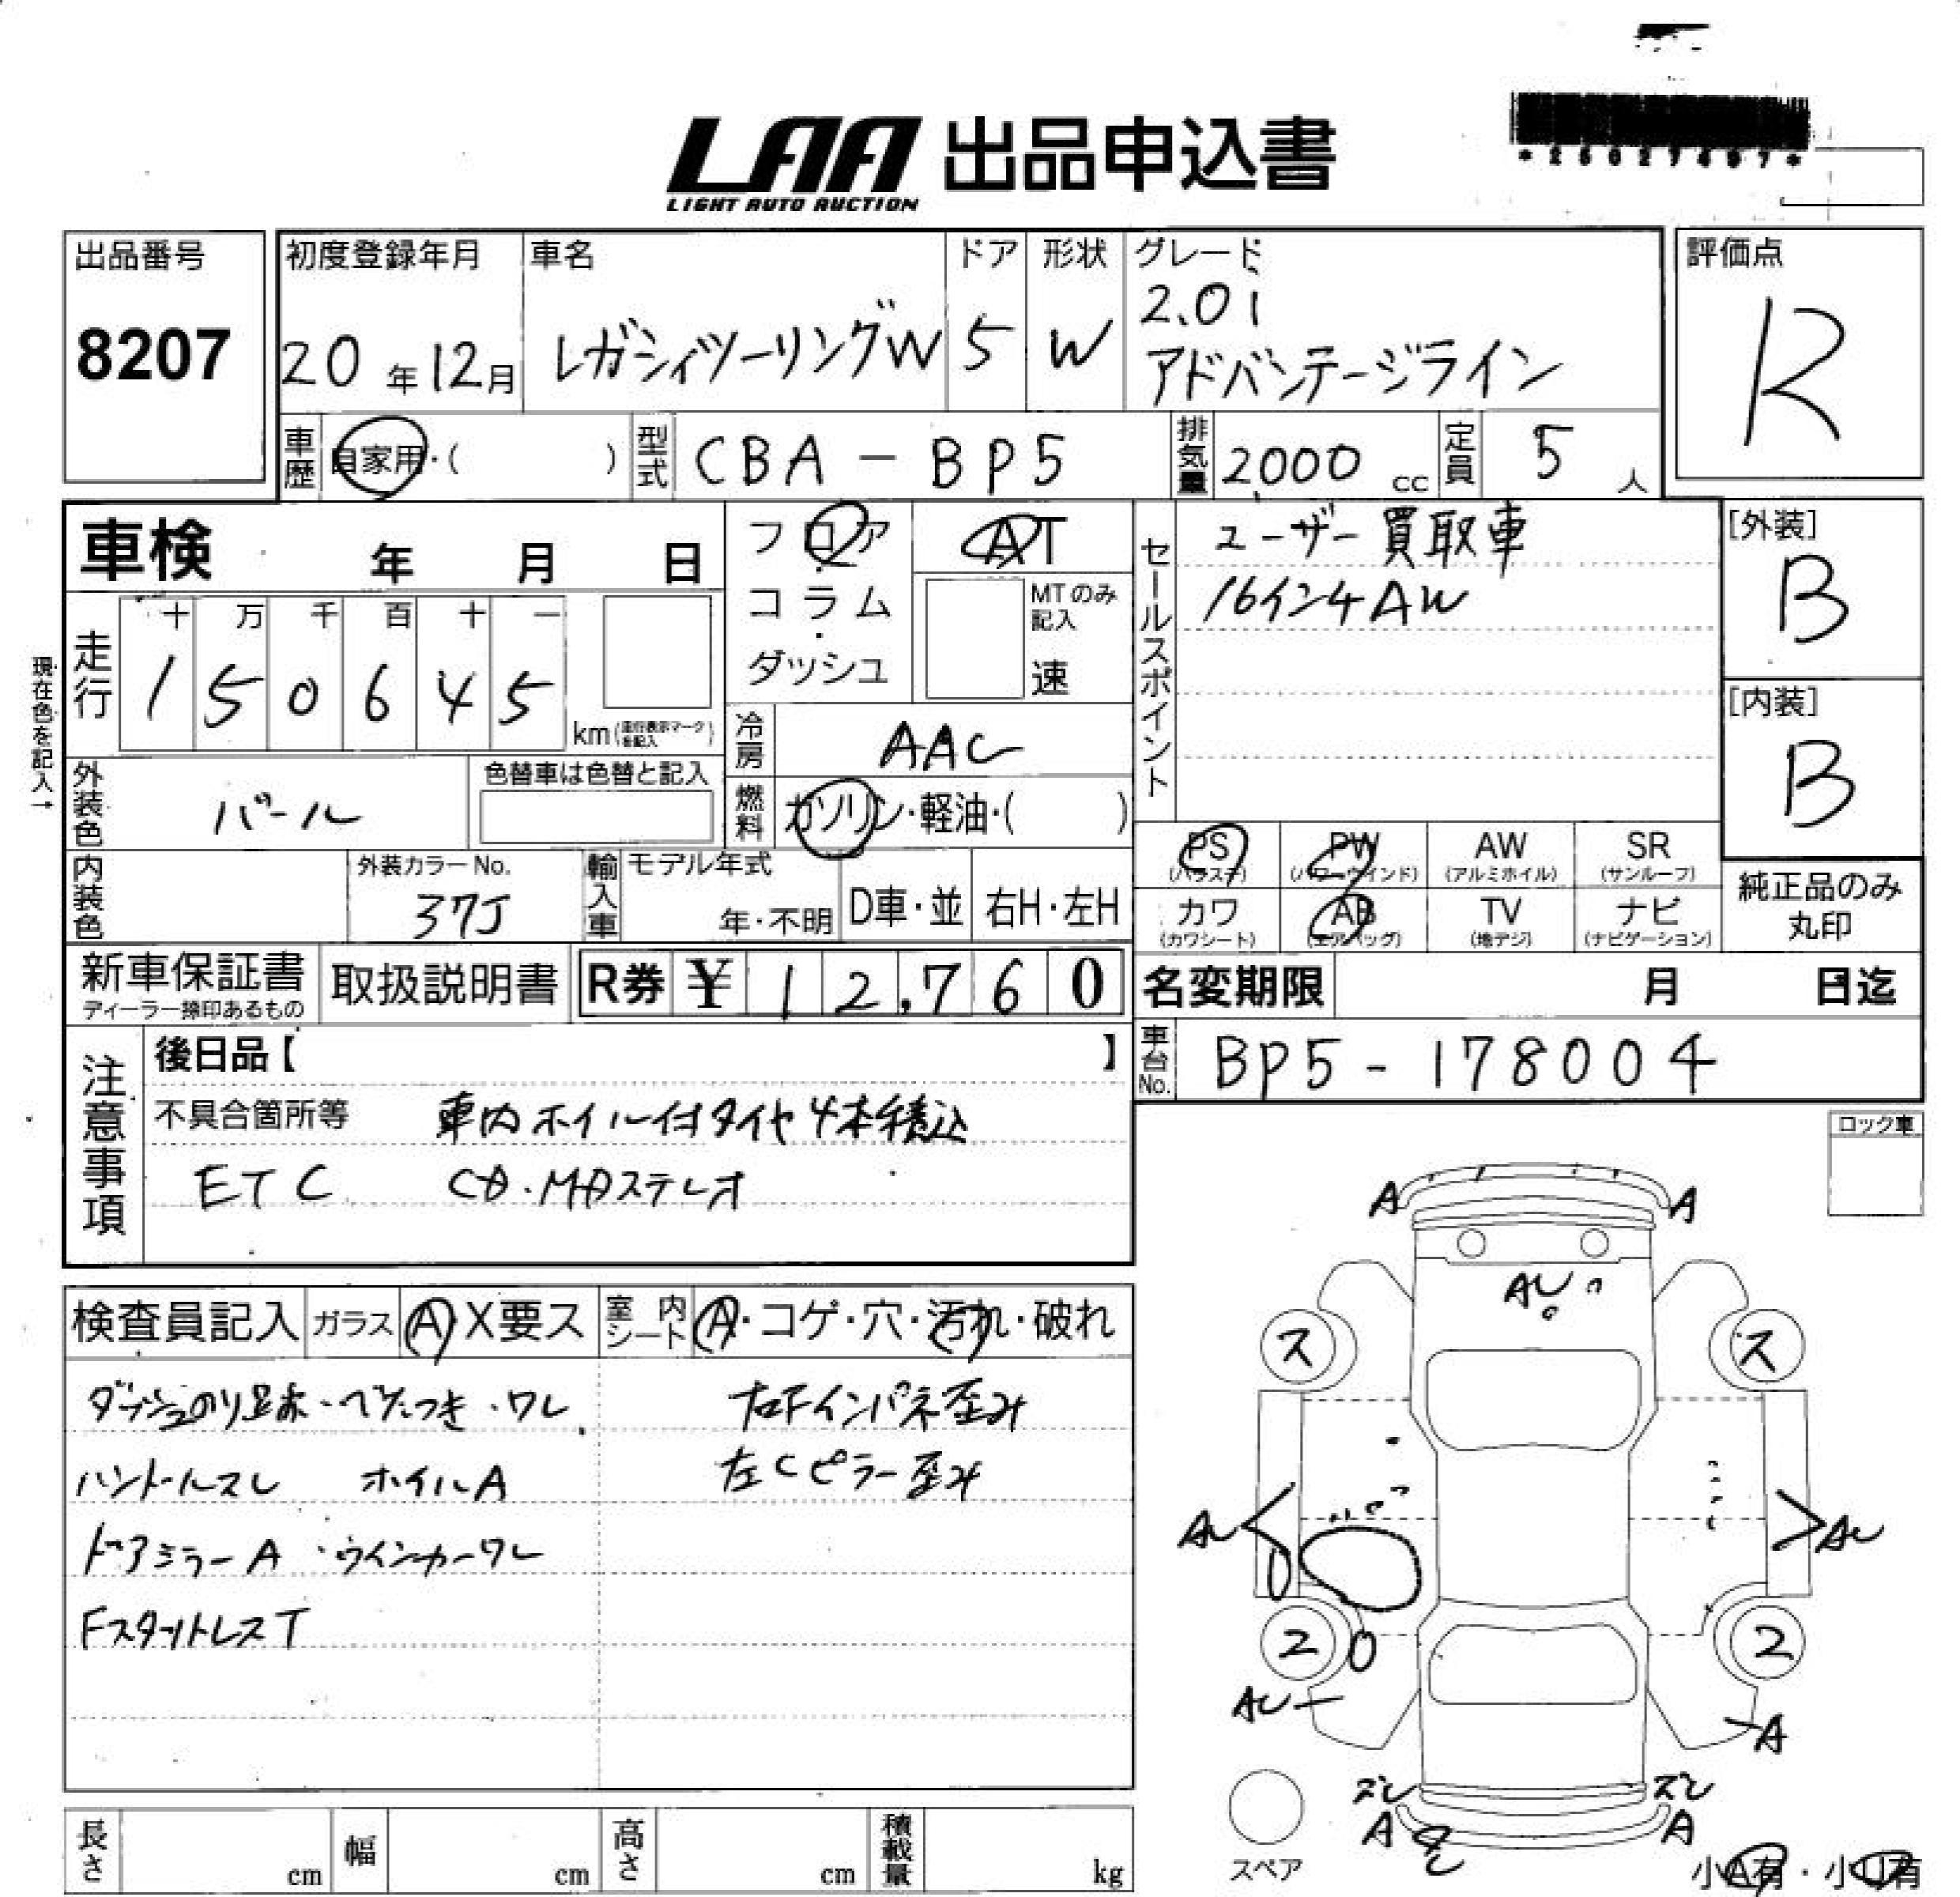 *25027497*
LAA 出品申込書
LIGHT AUTO AUCTION
出品番号
8207
初度登録年月
20年12月
車名
レガシィツーリングW
ドア
5
形状
W
グレード
2.0i
アドバンテージライン
評価点
R
車歴 自家用・( )
型式 CBA-BP5
排気量 2000 cc
定員 5 人
車検 年 月 日
フロア・コラム・ダッシュ
AT
MTのみ記入
速
セールスポイント
ユーザー買取車
16インチAW
[外装]
B
[内装]
B
現在色を記入→
走行
十 万 千 百 十 一
1 5 0 6 4 5
km(走行表示マークを記入)
冷房 AAC
外装色 パール
色替車は色替と記入
燃料 ガソリン・軽油・( )
PS (パワステ)
PW (パワーウインド)
AW (アルミホイル)
SR (サンルーフ)
カワ (カワシート)
AB (エアバッグ)
TV (地デジ)
ナビ (ナビゲーション)
純正品のみ丸印
内装色
外装カラーNo.
37J
輸入車
モデル年式
年・不明
D車・並
右H・左H
新車保証書
ディーラー捺印あるもの
取扱説明書
R券 ¥ 12,760
名変期限 月 日迄
注意事項
後日品【 】
車台No. BP5-178004
不具合箇所等 車内ホイル付タイヤ4本積込
ETC CD・MDステレオ
ロック車
検査員記入
ガラス A X要ス
室内シート A・コゲ・穴・汚れ・破れ
ダッシュのり跡・べたつき・ワレ
右Fインパネ歪み
ハンドルスレ ホイルA
左Cピラー歪み
ドアミラーA・ウインカーワレ
FスタッドレスT
A A
AU
ス ス
AU AU
2 2
AU A
ズレ ズレ
A A
スペア
小A有・小U有
長さ cm
幅 cm
高さ cm
積載量 kg